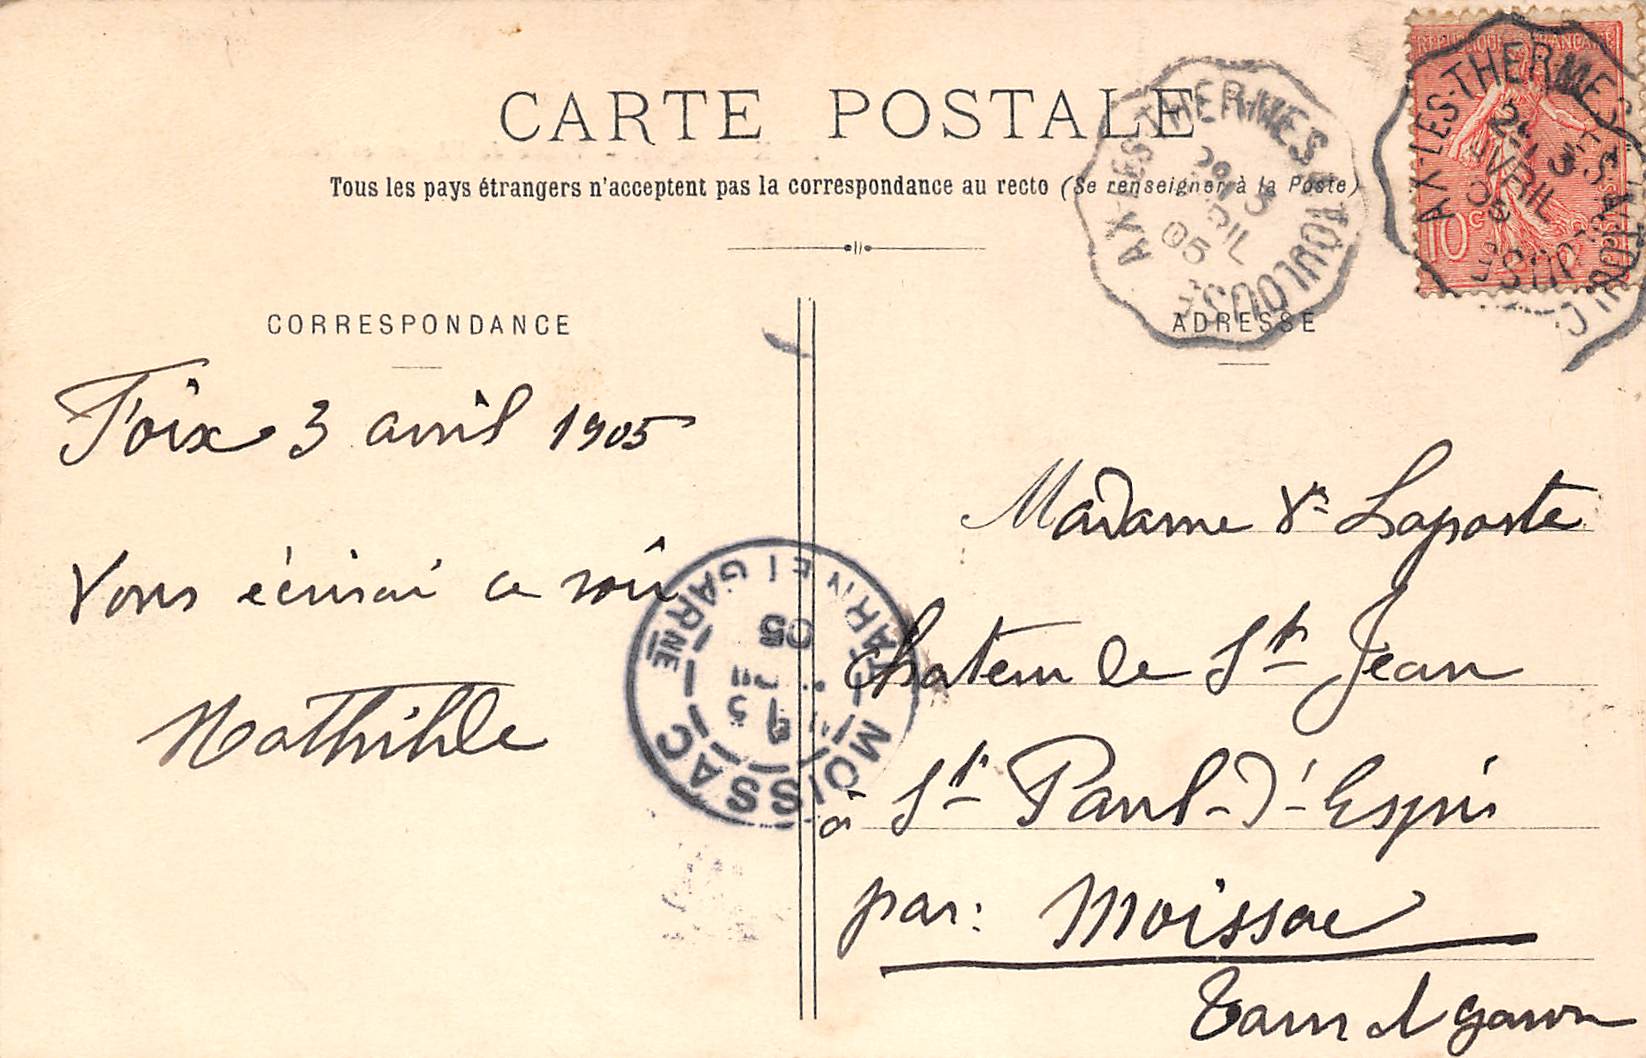 CARTE POSTALE
Tous les pays étrangers n'acceptent pas la correspondance au recto (Se renseigner à la Poste)
RÉPUBLIQUE FRANÇAISE
10c
AX-LES-THERMES À TOULOUSE
2E 3
AVRIL
05
AX-LES-THERMES À TOULOUSE
3
AVRIL
05
CORRESPONDANCE
Foix 3 avril 1905
Vous écrirai ce soir
Mathilde
MOISSAC
TARN ET GARNE
05
ADRESSE
Madame Ve Laporte
Chateau de St Jean
à St Paul-d'Espis
par: Moissac
Tarn et Garonne